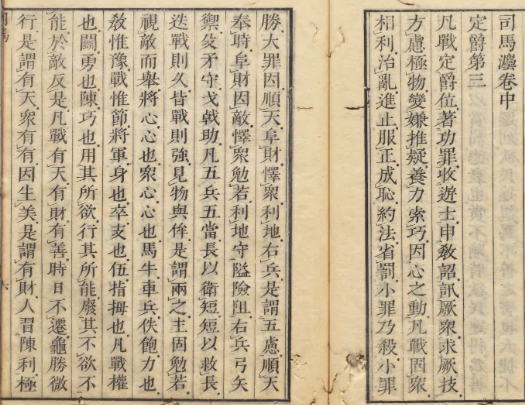 司馬灋卷中
定爵第三
凡戰定爵位著功罪收遊士申敎詔訊厥衆求厥技
方慮極物變嫌推疑養力索巧因心之動凡戰固衆
相利治亂進止服正成恥約法省罰小罪乃殺小罪
勝大罪因順天阜財懌衆利地右兵是謂五慮順天
奉時阜財因敵懌衆勉若利地守隘險阻右兵弓矢
禦殳矛守戈戟助凡五兵五當長以衛短短以救長
迭戰則久皆戰則強見物與侔是謂兩之主固勉若
視敵而舉將心心也衆心心也馬牛車兵佚飽力也
敎惟豫戰惟節將軍身也卒支也伍指拇也凡戰權
也鬭勇也陳巧也用其所欲行其所能廢其不欲不
能於敵反是凡戰有天有財有善時日不遷龜勝微
行是謂有天衆有有因生美是謂有財人習陳利極